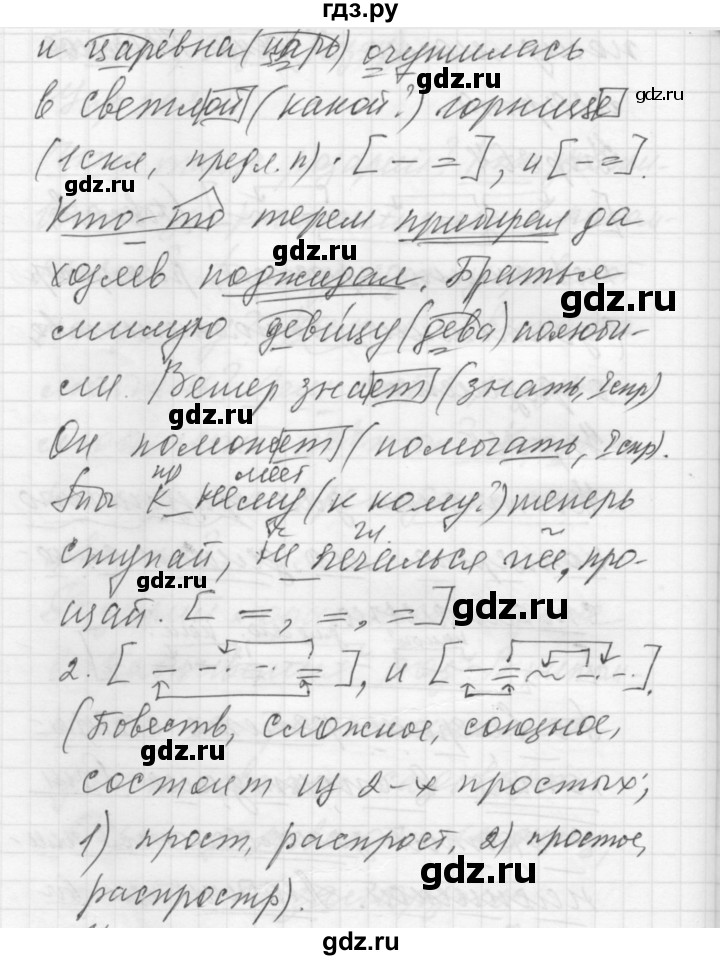 гдз.ру
и царевна (царь) очутилась
в светлой (какой?) горнице
(1скл, предл.п). [– =], и [– =].
Кто-то терем прибирал да
хозяев поджидал. Братья
милую девицу (дева) полюби-
ли. Ветер знает (знать, I спр)
Он поможет (помогать, I спр).
пр мест
Ты к нему (к кому?) теперь
ч гл
ступай, не печалься и, про-
щай. [=, =, =]
2. [– – – · =], и [– = ~ – · – ·].
(Повеств, сложное, союзное,
состоит из 2-х простых;
1) прост, распрост, 2) простое,
распростр).
gdz.ru
gdz.ru
gdz.ru
gdz.ru
gdz.ru
gdz.ru
gdz.ru
gdz.ru
gdz.ru
gdz.ru
gdz.ru
gdz.ru
gdz.ru